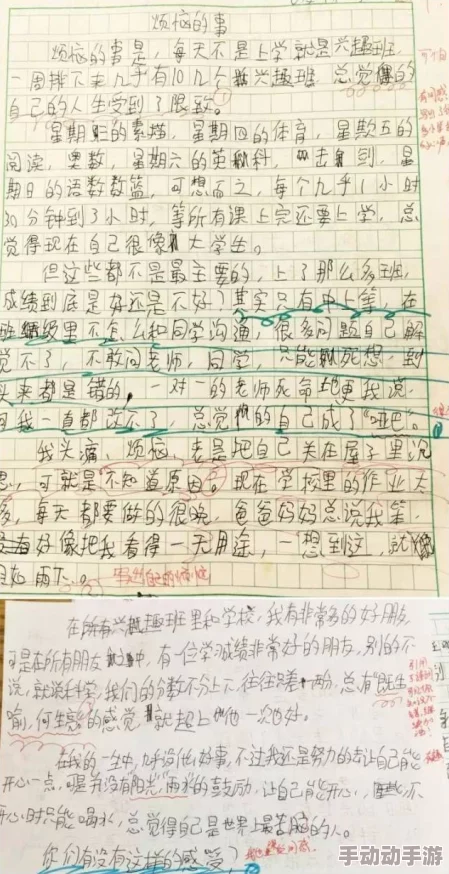 烦恼的事
烦恼的事是，每天不是上学就是兴趣班，
一周排下来几乎有10几个兴趣班总觉得的
自己的人生受到了限致。
星期的素描，星期四的体育，星期五的
阅读，奥数，星期六的英科，击剑，星
期日的语数数篮，可想而之，每个几乎1小时
30分钟到3小时，等所有课上完还要上学，总
觉得现在自己很像大学生。
但这些都不是最主要的，上了那么多班，
成绩到底是好还是不好？其实只有中上等，在
班级里不怎么和同学沟通，很多问题自己解
觉不了，不敢问老师，同学，只能死想，到
头来都是错的，一对一的老师死命地更我说，
可我一直都改不了，总觉的自己成了“哑巴”。
我头痛，烦恼，老是把自己关在屋子里沉
思，可就是不知道原因。现在学校里的作业太
多，每天都要做的很晚，爸爸妈妈总说我笨，
好像把我看得一无用途，一想到这，就像
如雨下。
写出自己的烦恼
在所有兴趣班里和学校，我有非常多的好朋友，
可是在所有朋友之中，有一位学习成绩非常好的朋友，别的不
说，就说科学，我们的分数不分上下，往往只差一两分，总有“既生
喻，何生亮”的感觉，就超上他一次也好。
在我的一生中，几乎没他好事，不过我还是努力的去让自己能
开心一点，可是并没有阳光雨水的鼓励，让自己能开心，不
开心时只能喝水，总觉得自己是世界上最苦脑的人。
你们有没有这样的感受？
手动动手游